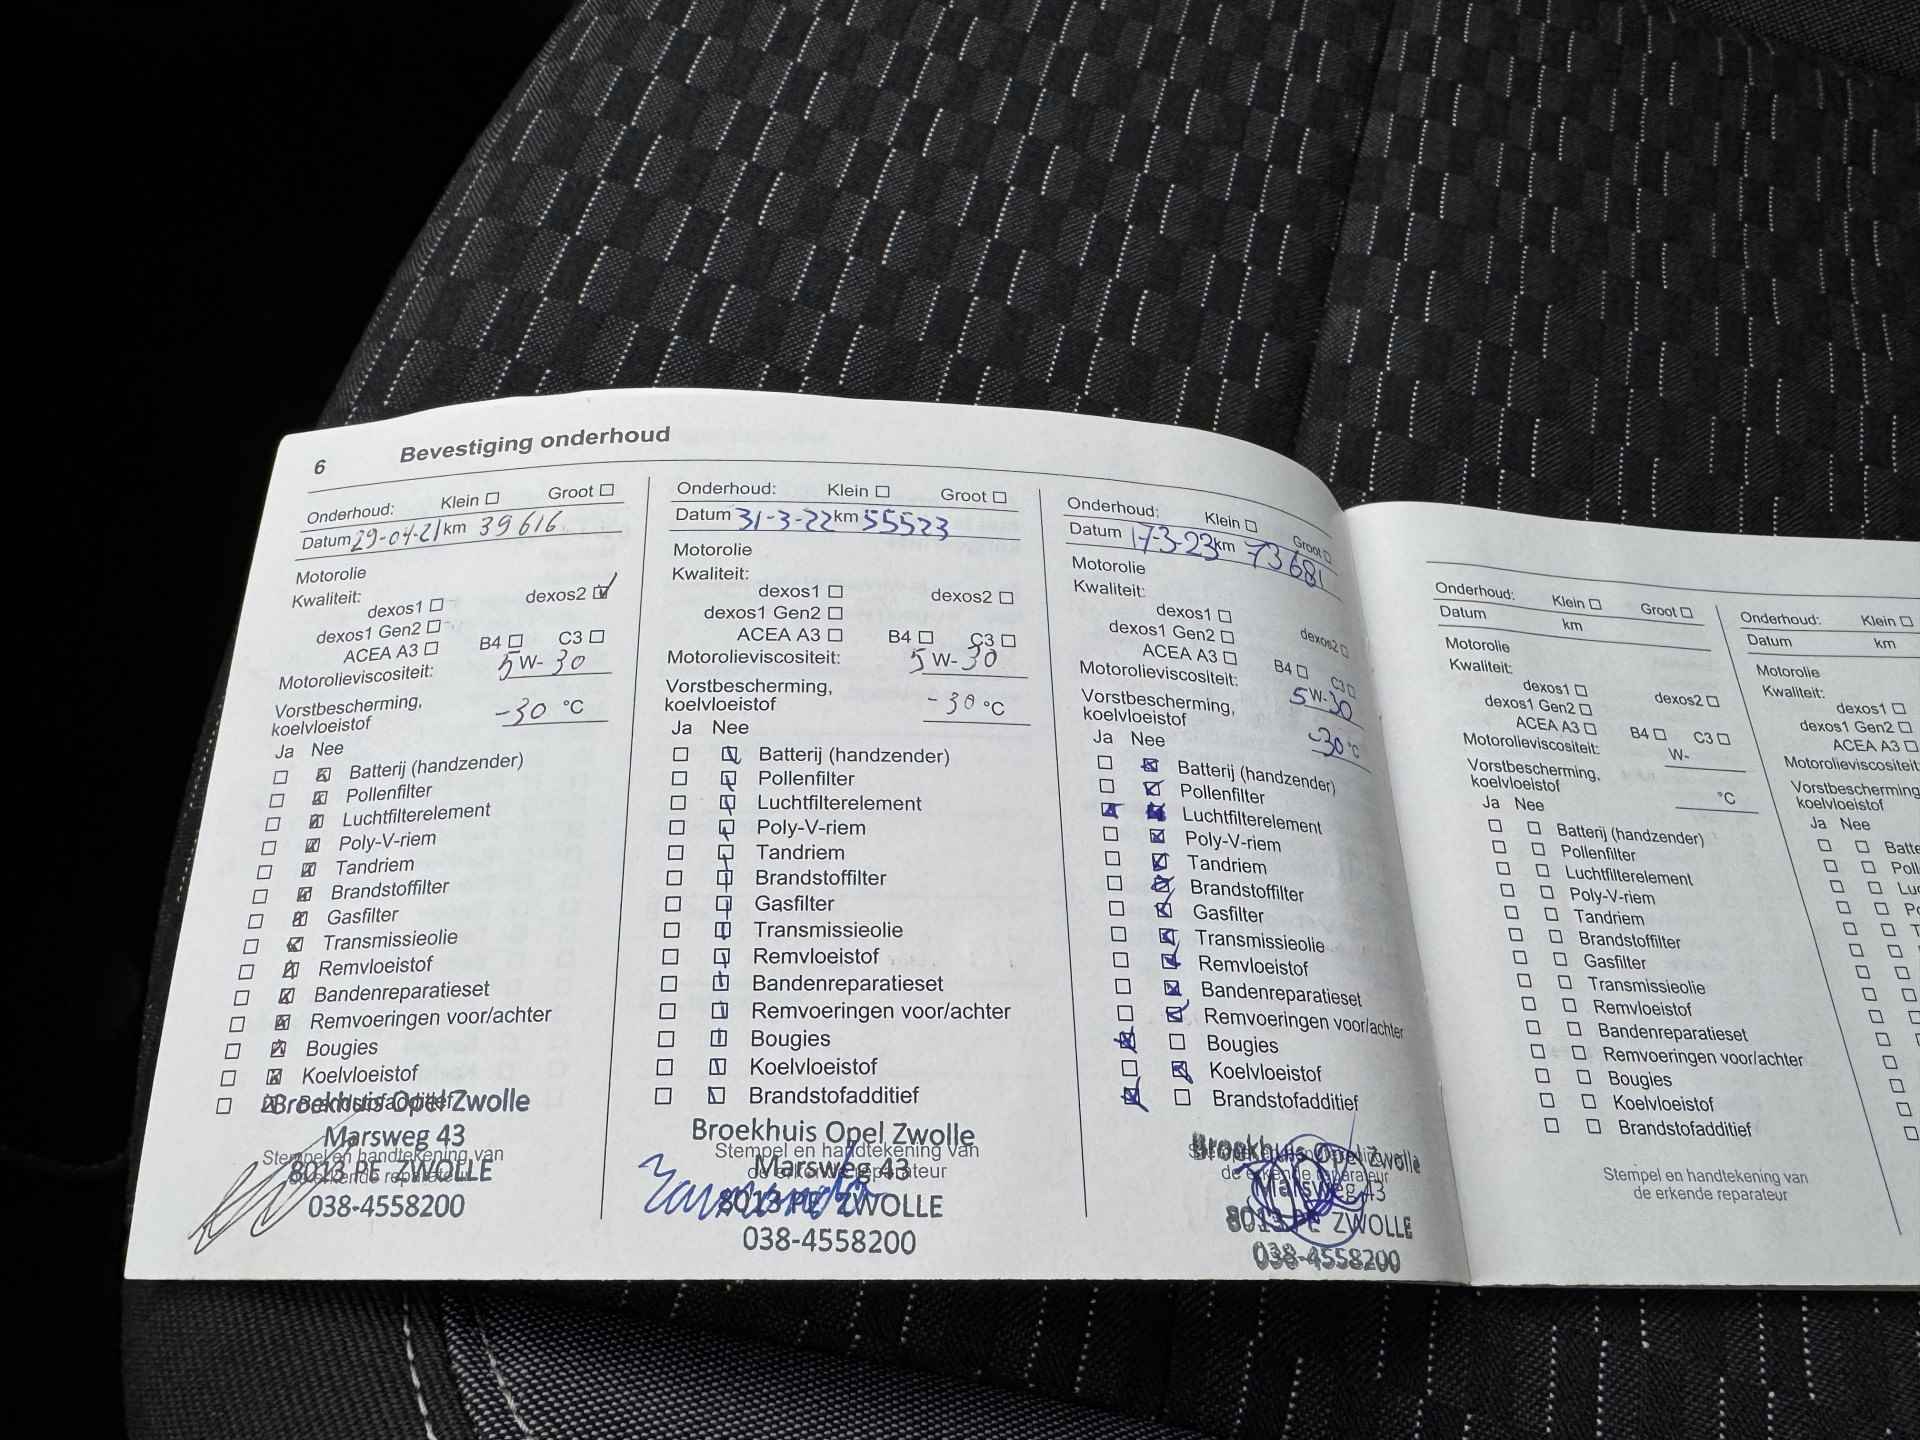 6 Bevestiging onderhoud
Onderhoud: Klein Groot
Datum 29-04-21 km 39616
Motorolie
Kwaliteit:
dexos1 dexos2
dexos1 Gen2
ACEA A3 B4 C3
Motorolieviscositeit: 5 W- 30
Vorstbescherming,
koelvloeistof -30 °C
Ja Nee
Batterij (handzender)
Pollenfilter
Luchtfilterelement
Poly-V-riem
Tandriem
Brandstoffilter
Gasfilter
Transmissieolie
Remvloeistof
Bandenreparatieset
Remvoeringen voor/achter
Bougies
Koelvloeistof
Brandstofadditief
Broekhuis Opel Zwolle
Marsweg 43
Stempel en handtekening van
8013 PE ZWOLLE
de erkende reparateur
038-4558200
Onderhoud: Klein Groot
Datum 31-3-22 km 55523
Motorolie
Kwaliteit:
dexos1 dexos2
dexos1 Gen2
ACEA A3 B4 C3
Motorolieviscositeit: 5 W-30
Vorstbescherming,
koelvloeistof -30 °C
Ja Nee
Batterij (handzender)
Pollenfilter
Luchtfilterelement
Poly-V-riem
Tandriem
Brandstoffilter
Gasfilter
Transmissieolie
Remvloeistof
Bandenreparatieset
Remvoeringen voor/achter
Bougies
Koelvloeistof
Brandstofadditief
Broekhuis Opel Zwolle
Stempel en handtekening van
Marsweg 43
de erkende reparateur
8013 PE ZWOLLE
038-4558200
Onderhoud: Klein Groot
Datum 17-3-23 km 73681
Motorolie
Kwaliteit:
dexos1
dexos1 Gen2 dexos2
ACEA A3 B4 C3
Motorolieviscositeit: 5 W-30
Vorstbescherming,
koelvloeistof -30 °C
Ja Nee
Batterij (handzender)
Pollenfilter
Luchtfilterelement
Poly-V-riem
Tandriem
Brandstoffilter
Gasfilter
Transmissieolie
Remvloeistof
Bandenreparatieset
Remvoeringen voor/achter
Bougies
Koelvloeistof
Brandstofadditief
Broekhuis Opel Zwolle
de erkende reparateur
Marsweg 43
8013 PE ZWOLLE
038-4558200
Onderhoud: Klein Groot
Datum km
Motorolie
Kwaliteit:
dexos1 dexos2
dexos1 Gen2
ACEA A3 B4 C3
Motorolieviscositeit: W-
Vorstbescherming,
koelvloeistof °C
Ja Nee
Batterij (handzender)
Pollenfilter
Luchtfilterelement
Poly-V-riem
Tandriem
Brandstoffilter
Gasfilter
Transmissieolie
Remvloeistof
Bandenreparatieset
Remvoeringen voor/achter
Bougies
Koelvloeistof
Brandstofadditief
Stempel en handtekening van
de erkende reparateur
Onderhoud: Klein
Datum km
Motorolie
Kwaliteit:
dexos1
dexos1 Gen2
ACEA A3
Motorolieviscositeit:
Vorstbescherming,
koelvloeistof
Ja Nee
Batte
Poll
Luc
Po
T